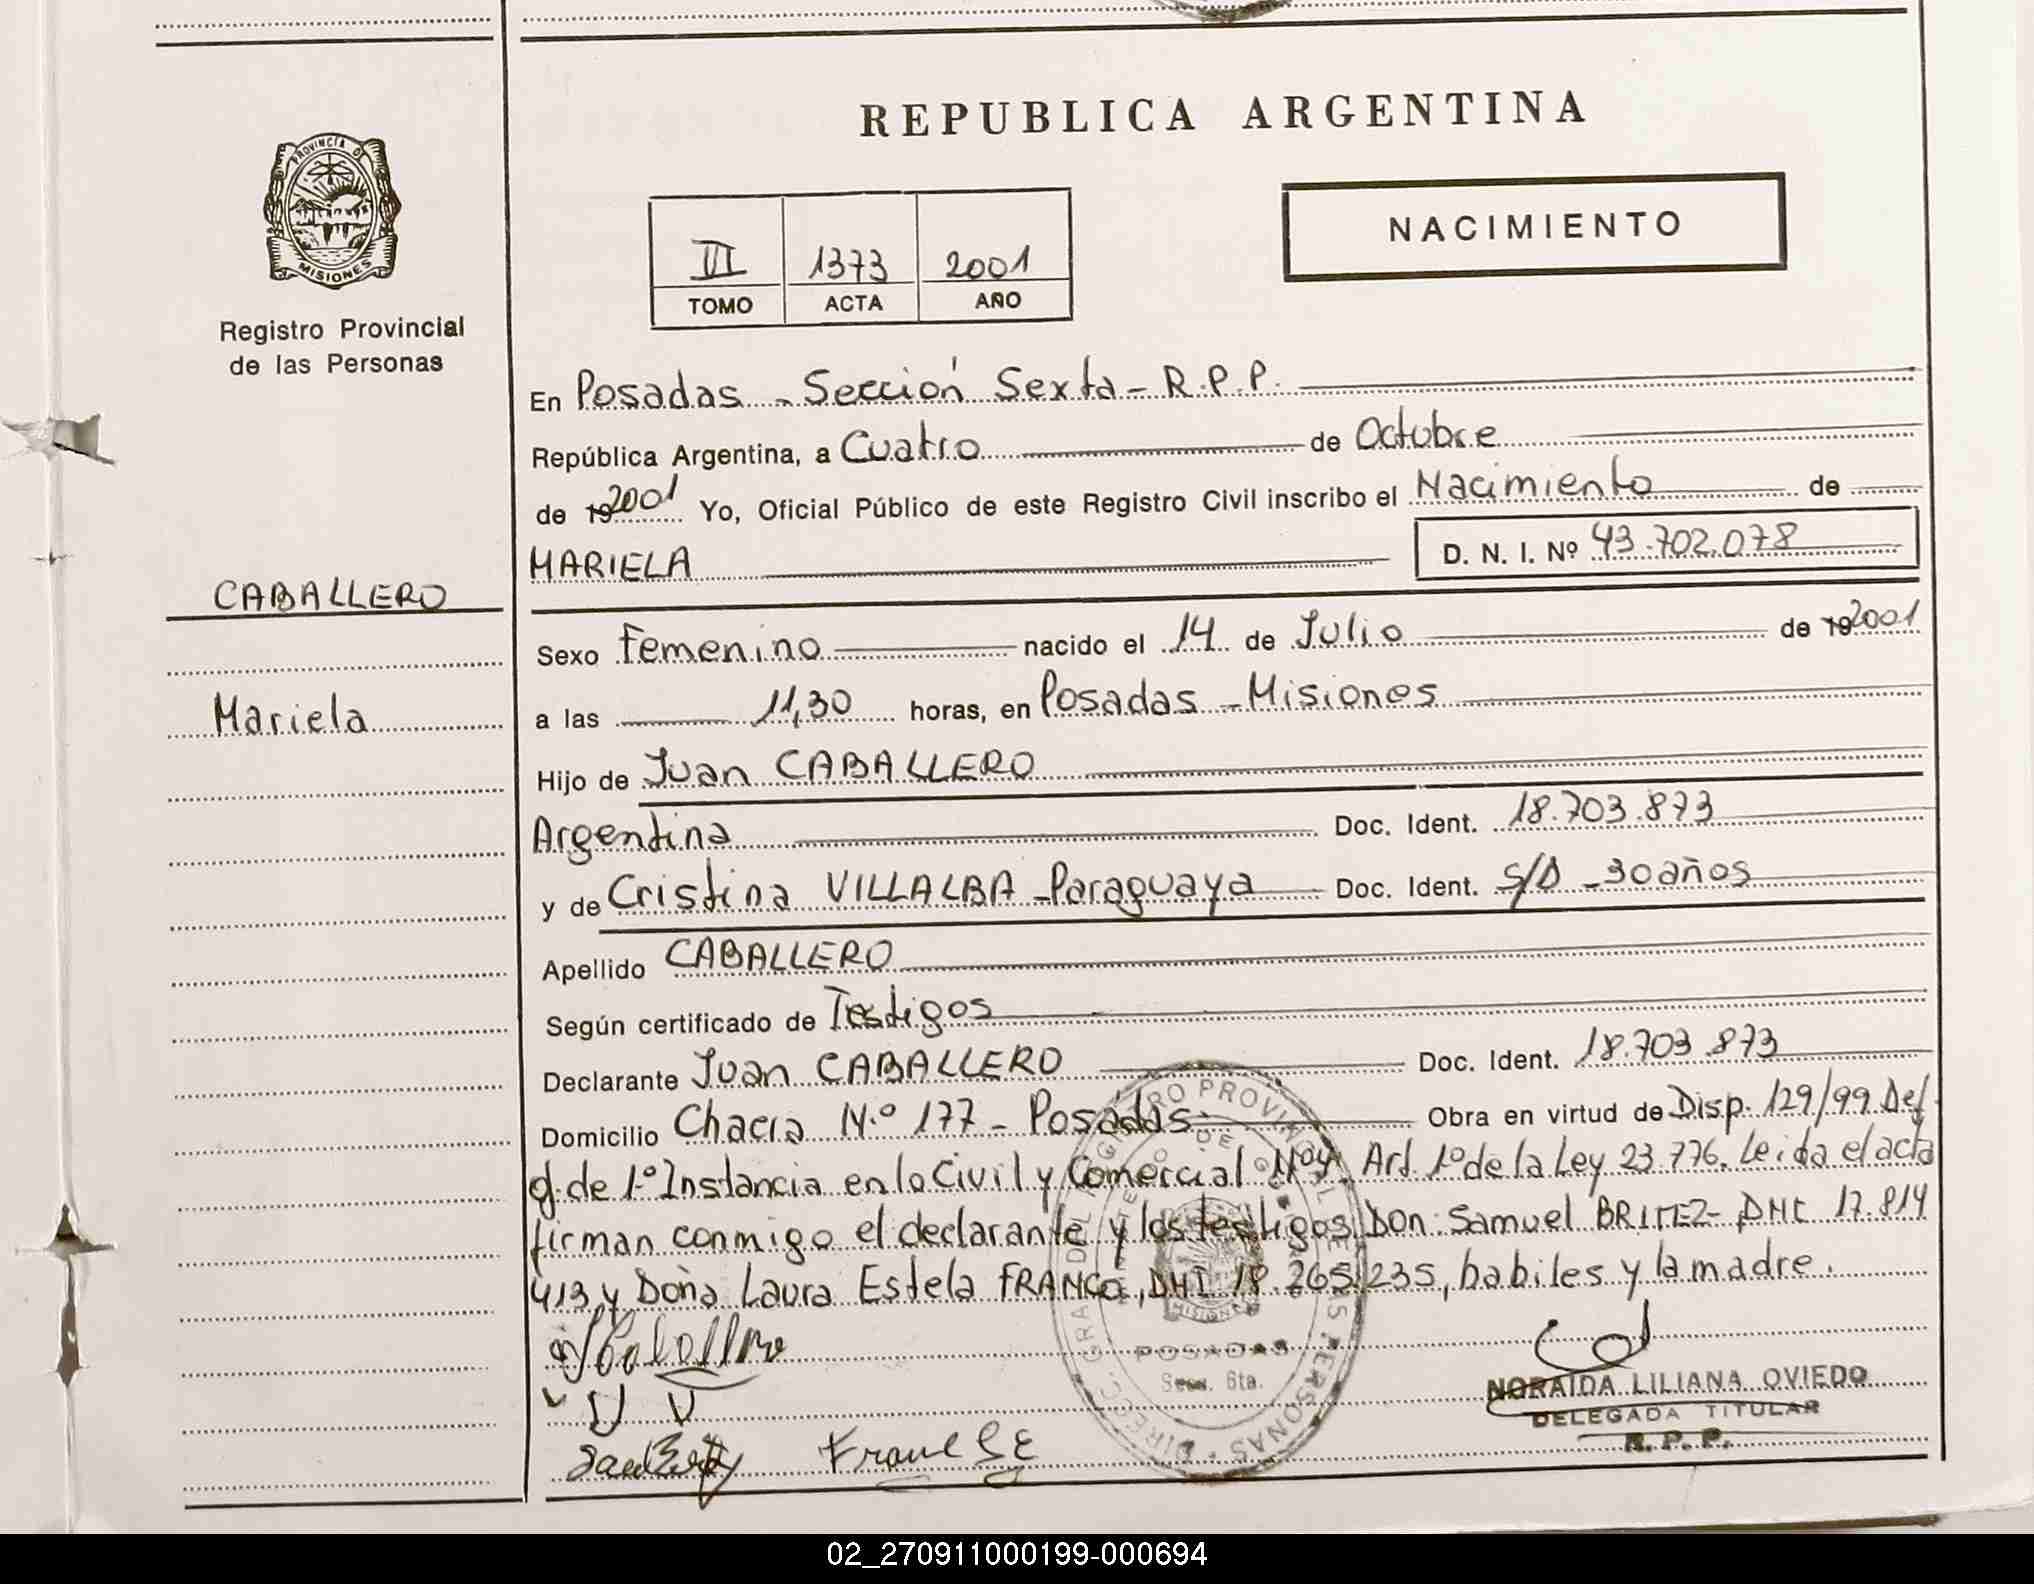 REPUBLICA ARGENTINA
PROVINCIA DE
MISIONES
Registro Provincial
de las Personas
NACIMIENTO
1373 2001
TOMO ACTA AÑO
En Posadas - Sección Sexta - R.P.P.
República Argentina, a Cuatro de Octubre
de 192001 Yo, Oficial Público de este Registro Civil inscribo el Nacimiento de
MARIELA D. N. I. Nº 43.702.078
CABALLERO
Sexo Femenino nacido el 14 de Julio de 192001
Mariela
a las 11,30 horas, en Posadas - Misiones
Hijo de Juan CABALLERO
Argentina Doc. Ident. 18.703.873
y de Cristina VILLALBA - Paraguaya Doc. Ident. S/D - 30 años
Apellido CABALLERO
Según certificado de Testigos
Declarante Juan CABALLERO Doc. Ident. 18.703.873
Domicilio Chacra N.º 177 - Posadas Obra en virtud de Disp. 129/99 Del
g. de 1.º Instancia en lo Civil y Comercial Nº 4 Art. 1º de la Ley 23.776. Leida el acta
firman conmigo el declarante y los testigos Don: Samuel BRITEZ - DNI 17.814
413 y Doña Laura Estela FRANCO, DNI 18.265.235, habiles y la madre.
DIRECC. GRAL. DEL REGISTRO PROVINCIAL DE LAS PERSONAS
MISIONES
POSADAS
Secc. 6ta.
NORAIDA LILIANA OVIEDO
DELEGADA TITULAR
R. P. P.
02_270911000199-000694